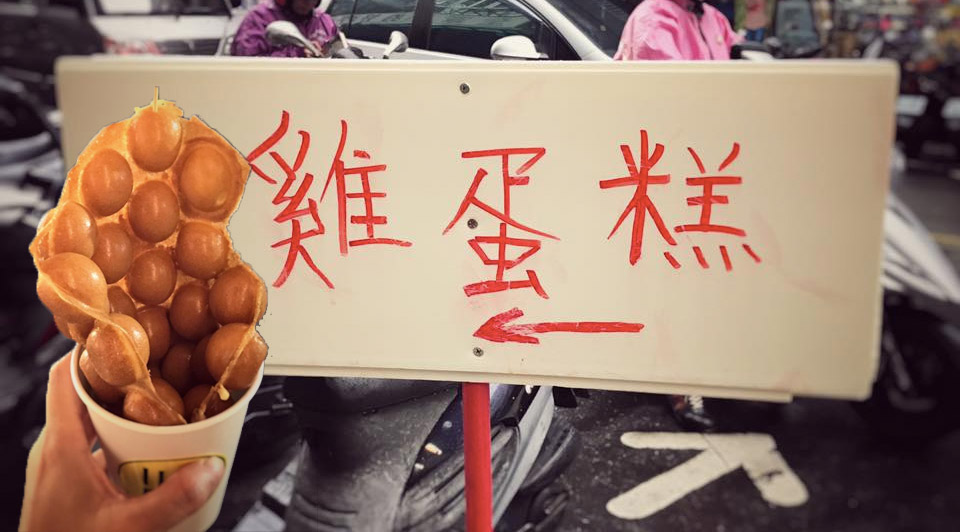 雞蛋糕